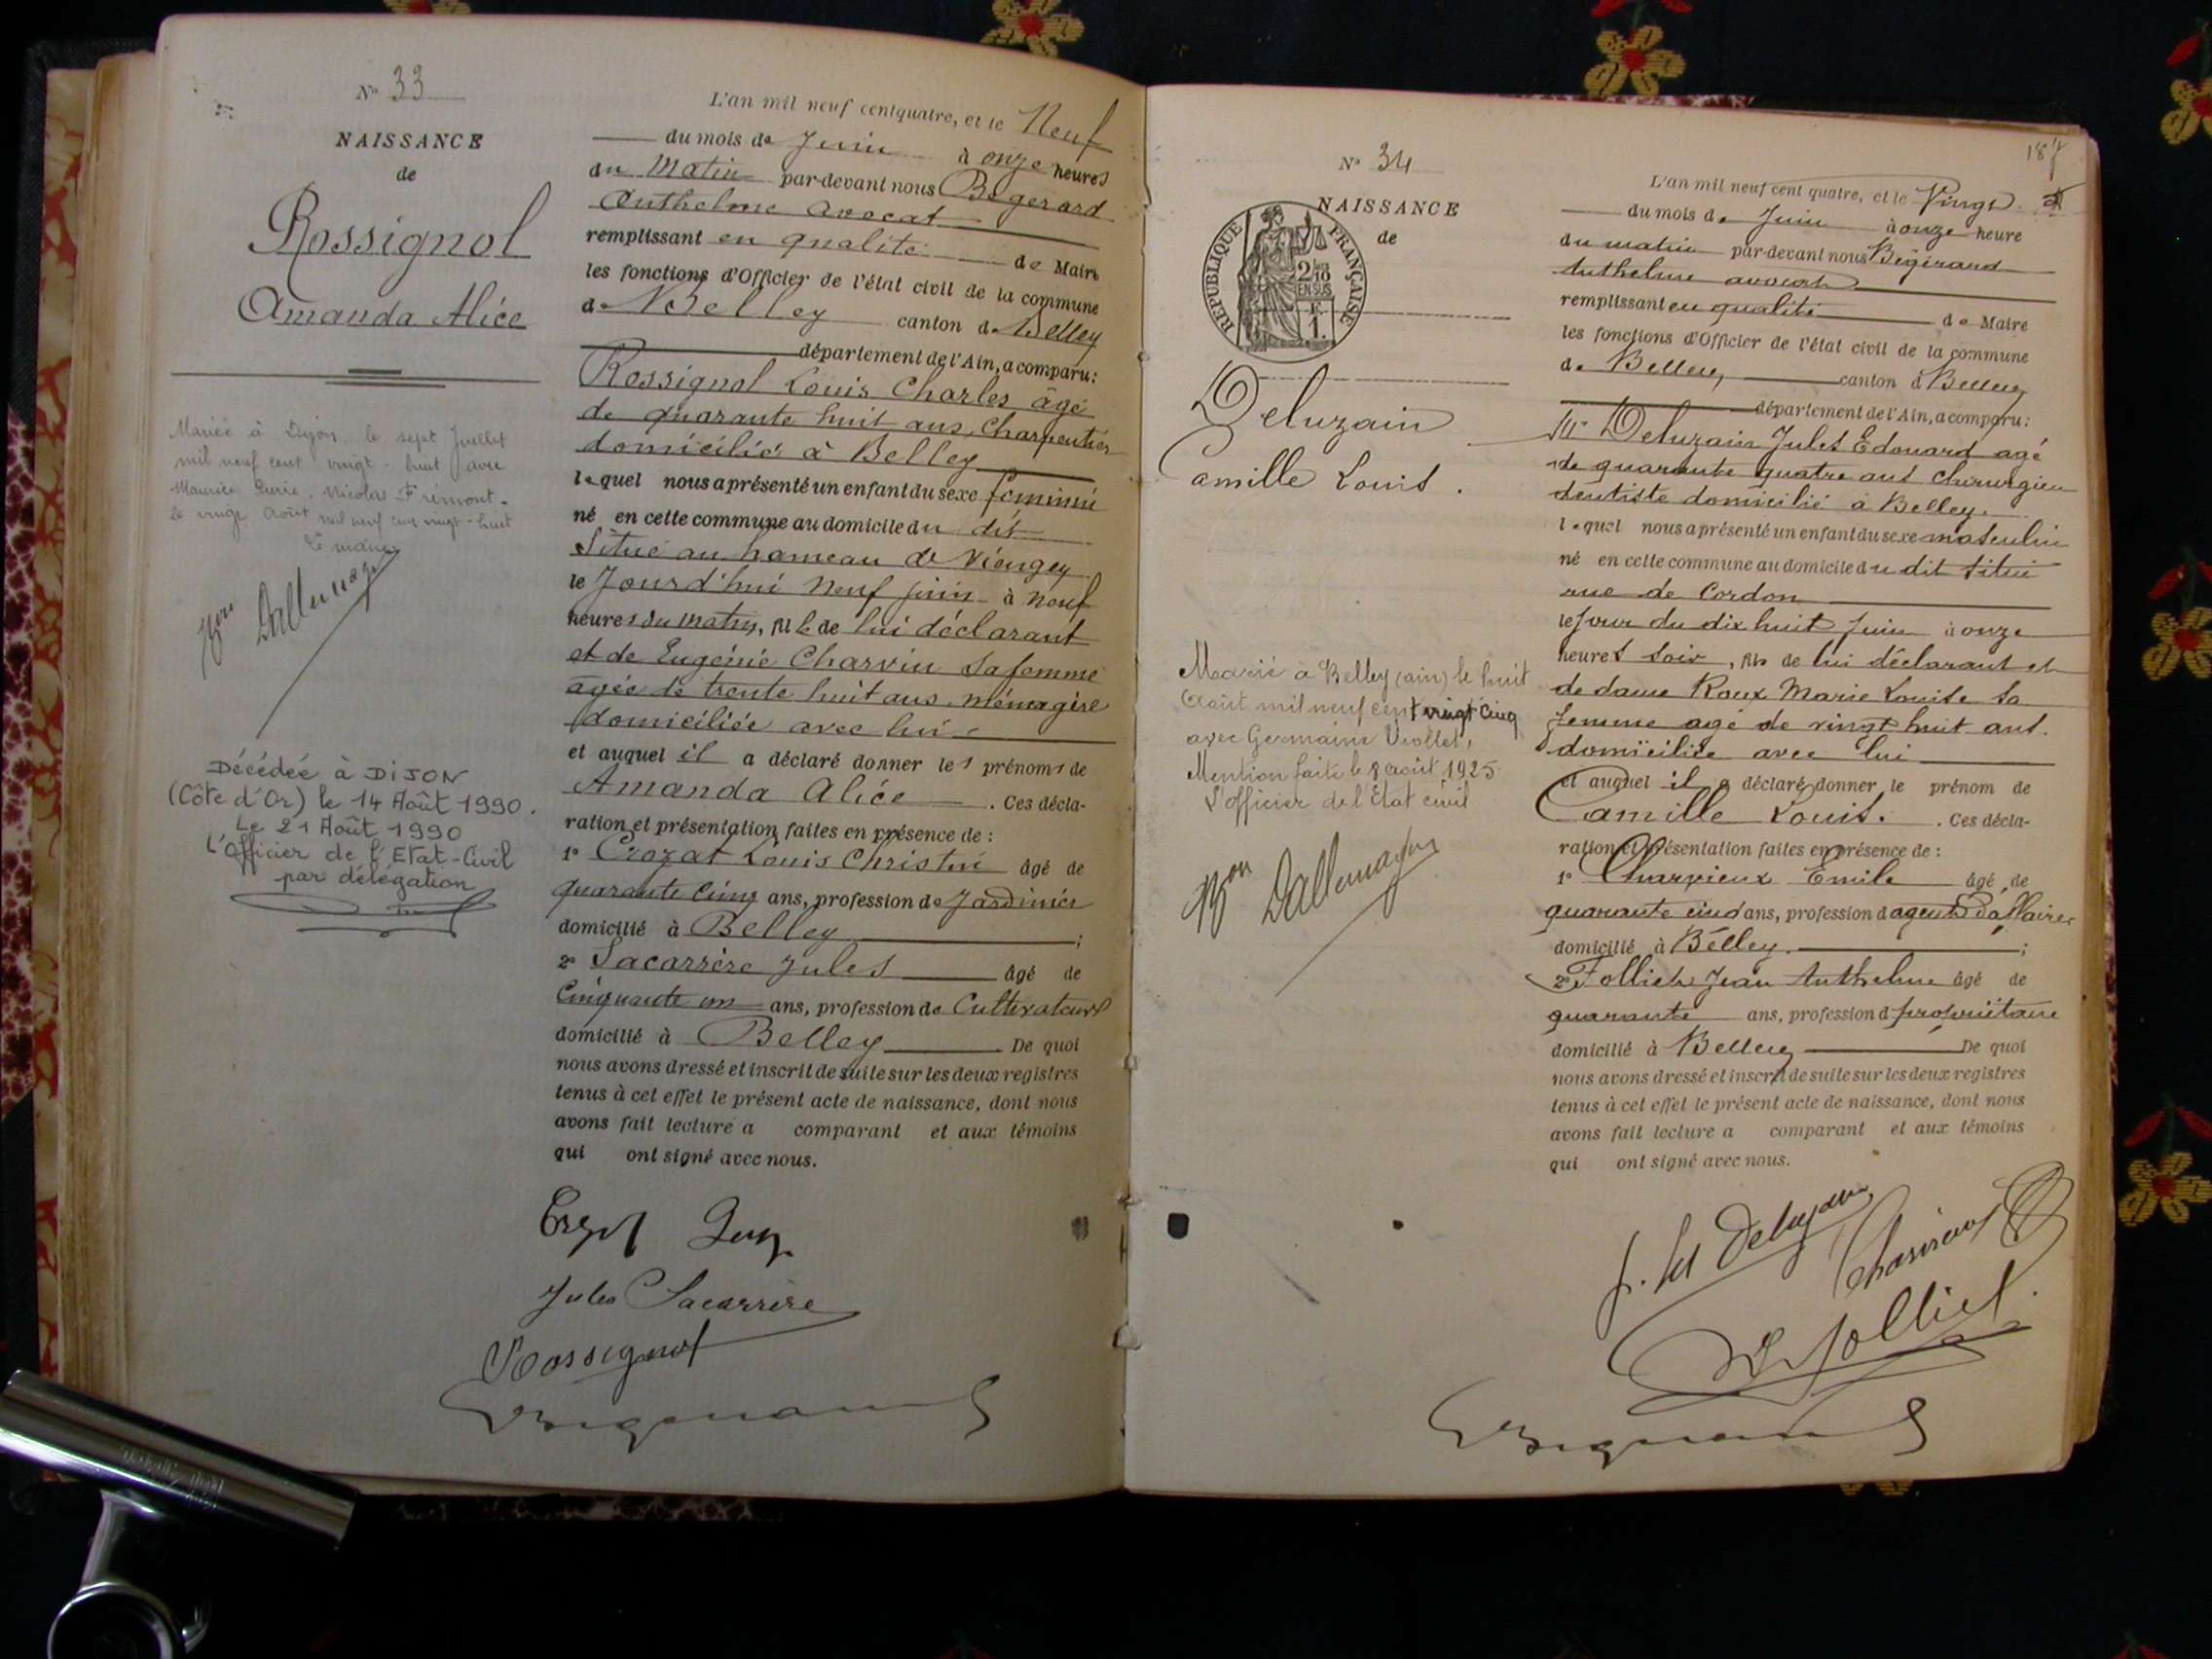 N° 33
NAISSANCE
de
Rossignol
Amanda Alice
Mariée à Dijon le sept Juillet
mil neuf cent vingt-huit avec
Maurice Nicolas Frémont.
le vingt Août mil neuf cent vingt-huit
Le maire
Bon Dallemagne
Décédée à DIJON
(Côte d'Or) le 14 Août 1990.
Le 21 Août 1990
L'Officier de l'Etat-Civil
par délégation
L'an mil neuf cent quatre, et le Neuf
du mois de Juin à onze heures
du Matin par-devant nous Bégerard
Anthelme avocat
remplissant en qualité de Maire
les fonctions d'Officier de l'état civil de la commune
de Belley canton de Belley
département de l'Ain, a comparu:
Rossignol Louis Charles âgé
de quarante huit ans, Charpentier
domicilié à Belley
lequel nous a présenté un enfant du sexe féminin
né en cette commune au domicile du dit
Situé au hameau de
le Jourd'hui Neuf juin à neuf
heures du matin, fille de lui déclarant
et de Eugénie Charvin sa femme
âgée de trente huit ans, ménagère
domiciliée avec lui
et auquel il a déclaré donner les prénoms de
Amanda Alice . Ces décla-
ration et présentation faites en présence de :
1° Crozat Louis Christin âgé de
quarante cinq ans, profession de Jardinier
domicilié à Belley ;
2° Lacarrère Jules âgé de
Cinquante un ans, profession de Cultivateur
domicilié à Belley De quoi
nous avons dressé et inscrit de suite sur les deux registres
tenus à cet effet le présent acte de naissance, dont nous
avons fait lecture a comparant et aux témoins
qui ont signé avec nous.
Jules Lacarrère
Rossignol
187
N° 34
NAISSANCE
de
REPUBLIQUE FRANÇAISE
2/10
EN SUS
F
1.
Deluzain
Camille Louis.
Marié à Belley (ain) le huit
Août mil neuf cent vingt cinq
avec Germaine Viollet,
Mention faite le 8 août 1925
L'officier de l'Etat civil
Bon Dallemagne
L'an mil neuf cent quatre, et le Vingt
du mois de Juin à onze heure
du matin par-devant nous Bégérard
Anthelme avocat
remplissant en qualité de Maire
les fonctions d'Officier de l'état civil de la commune
de Belley, canton d Belley
département de l'Ain, a comparu:
Mr Deluzain Jules Edouard agé
de quarante quatre ans chirurgien
dentiste domicilié à Belley.
lequel nous a présenté un enfant du sexe masculin
né en cette commune au domicile du dit situé
rue de Cordon
le Jour du dix huit Juin à onze
heures soir, fils de lui déclarant et
de dame Roux Marie Louise sa
femme agé de vingt huit ans.
domicilié avec lui
et auquel il a déclaré donner le prénom de
Camille Louis. . Ces décla-
ration et présentation faites en présence de :
1° Charvieux Emile âgé de
quarante cinq ans, profession d agent d'affaires
domicilié à Belley. ;
2° Folliet Jean Anthelme âgé de
quarante ans, profession d propriétaire
domicilié à Belley De quoi
nous avons dressé et inscrit de suite sur les deux registres
tenus à cet effet le présent acte de naissance, dont nous
avons fait lecture a comparant et aux témoins
qui ont signé avec nous.
Charvieux
Folliet